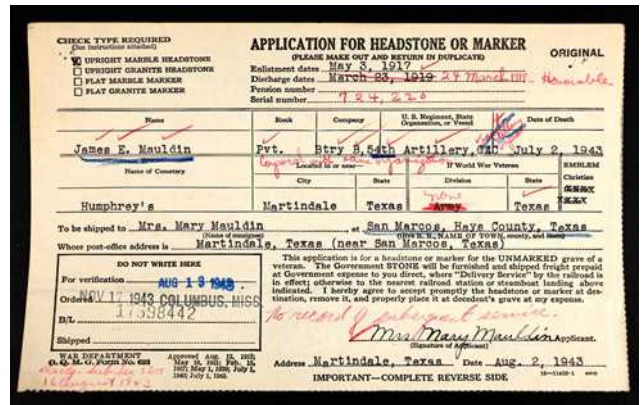 CHECK TYPE REQUIRED
(See instructions attached)
UPRIGHT MARBLE HEADSTONE
UPRIGHT GRANITE HEADSTONE
FLAT MARBLE MARKER
FLAT GRANITE MARKER
APPLICATION FOR HEADSTONE OR MARKER
(PLEASE MAKE OUT AND RETURN IN DUPLICATE)
ORIGINAL
Enlistment dates May 3, 1917
Discharge dates March 23, 1919 24 March Honorable
Pension number
Serial number 724,220
Name Rank Company U. S. Regiment, State Organization, or Vessel Date of Death
James E. Mauldin Pvt. Btry B, 54th Artillery, CAC July 2, 1943
Corporal with same organization
Name of Cemetery Located in or near— If World War Veteran EMBLEM
City State Division State Christian
none
Humphrey's Martindale Texas Army Texas
To be shipped to Mrs. Mary Mauldin at San Marcos, Hays County, Texas
(Name of consignee) (Give R. R. NAME OF TOWN, county, and State)
Whose post-office address is Martindale, Texas (near San Marcos, Texas)
DO NOT WRITE HERE
For verification AUG 13 1943
Ordered NOV 17 1943 COLUMBUS, MISS.
17398442
B/L
Shipped
This application is for a headstone or marker for the UNMARKED grave of a
veteran. The Government STONE will be furnished and shipped freight prepaid
at Government expense to you direct, where "Delivery Service" by the railroad is
in effect; otherwise to the nearest railroad station or steamboat landing above
indicated. I hereby agree to accept promptly the headstone or marker at des-
tination, remove it, and properly place it at decedent's grave at my expense.
No record of subsequent service.
Mrs Mary Mauldin Applicant.
(Signature of Applicant)
Address Martindale, Texas Date Aug. 2, 1943
IMPORTANT—COMPLETE REVERSE SIDE
WAR DEPARTMENT
O. Q. M. G. Form No. 623
16 August 1943